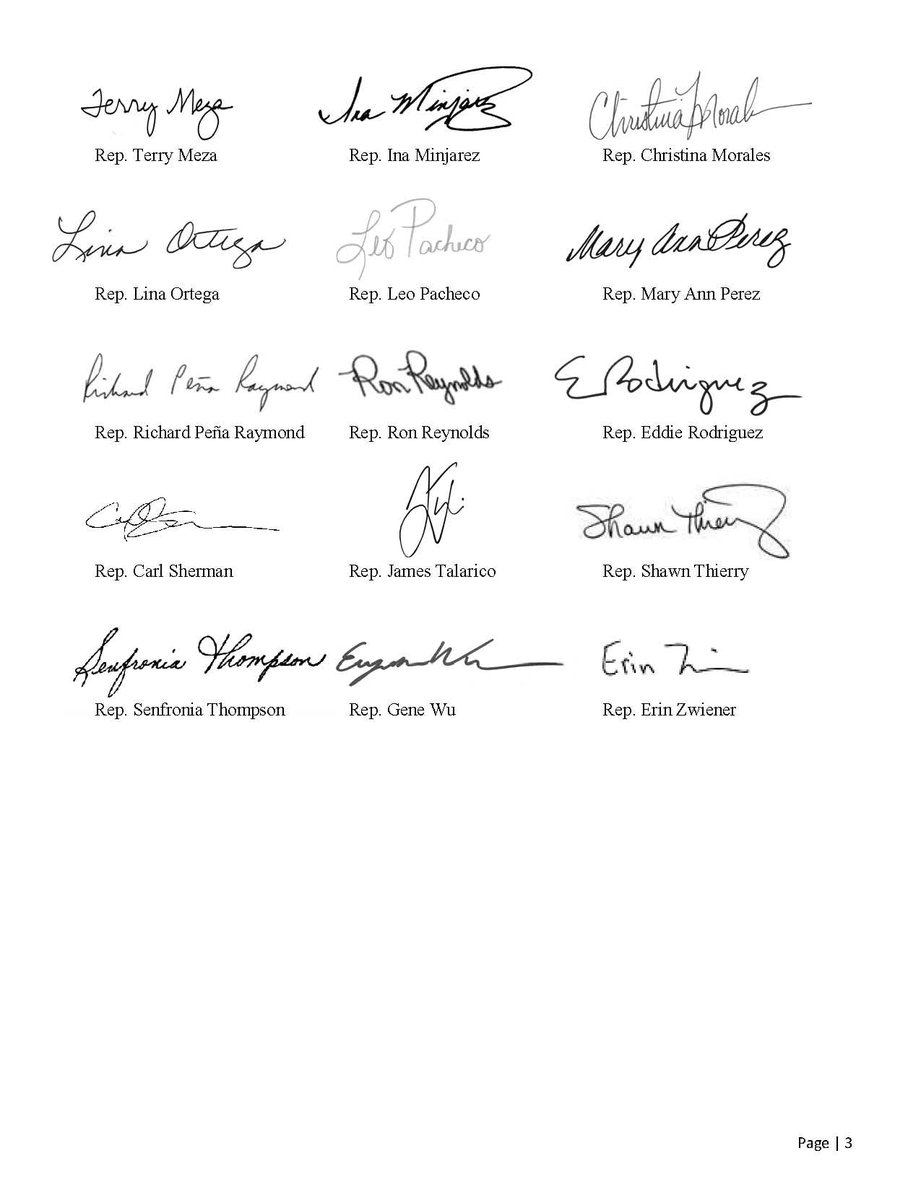 Terry Meza Ina Minjarez Christina Morales
Rep. Terry Meza Rep. Ina Minjarez Rep. Christina Morales
Lina Ortega Leo Pacheco Mary Ann Perez
Rep. Lina Ortega Rep. Leo Pacheco Rep. Mary Ann Perez
Richard Peña Raymond Ron Reynolds E Rodriguez
Rep. Richard Peña Raymond Rep. Ron Reynolds Rep. Eddie Rodriguez
Shawn Thierry
Rep. Carl Sherman Rep. James Talarico Rep. Shawn Thierry
Senfronia Thompson Eugene Wu Erin
Rep. Senfronia Thompson Rep. Gene Wu Rep. Erin Zwiener
Page | 3